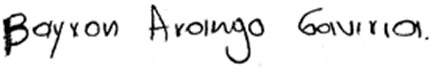 Bayron Arango Gaviria.